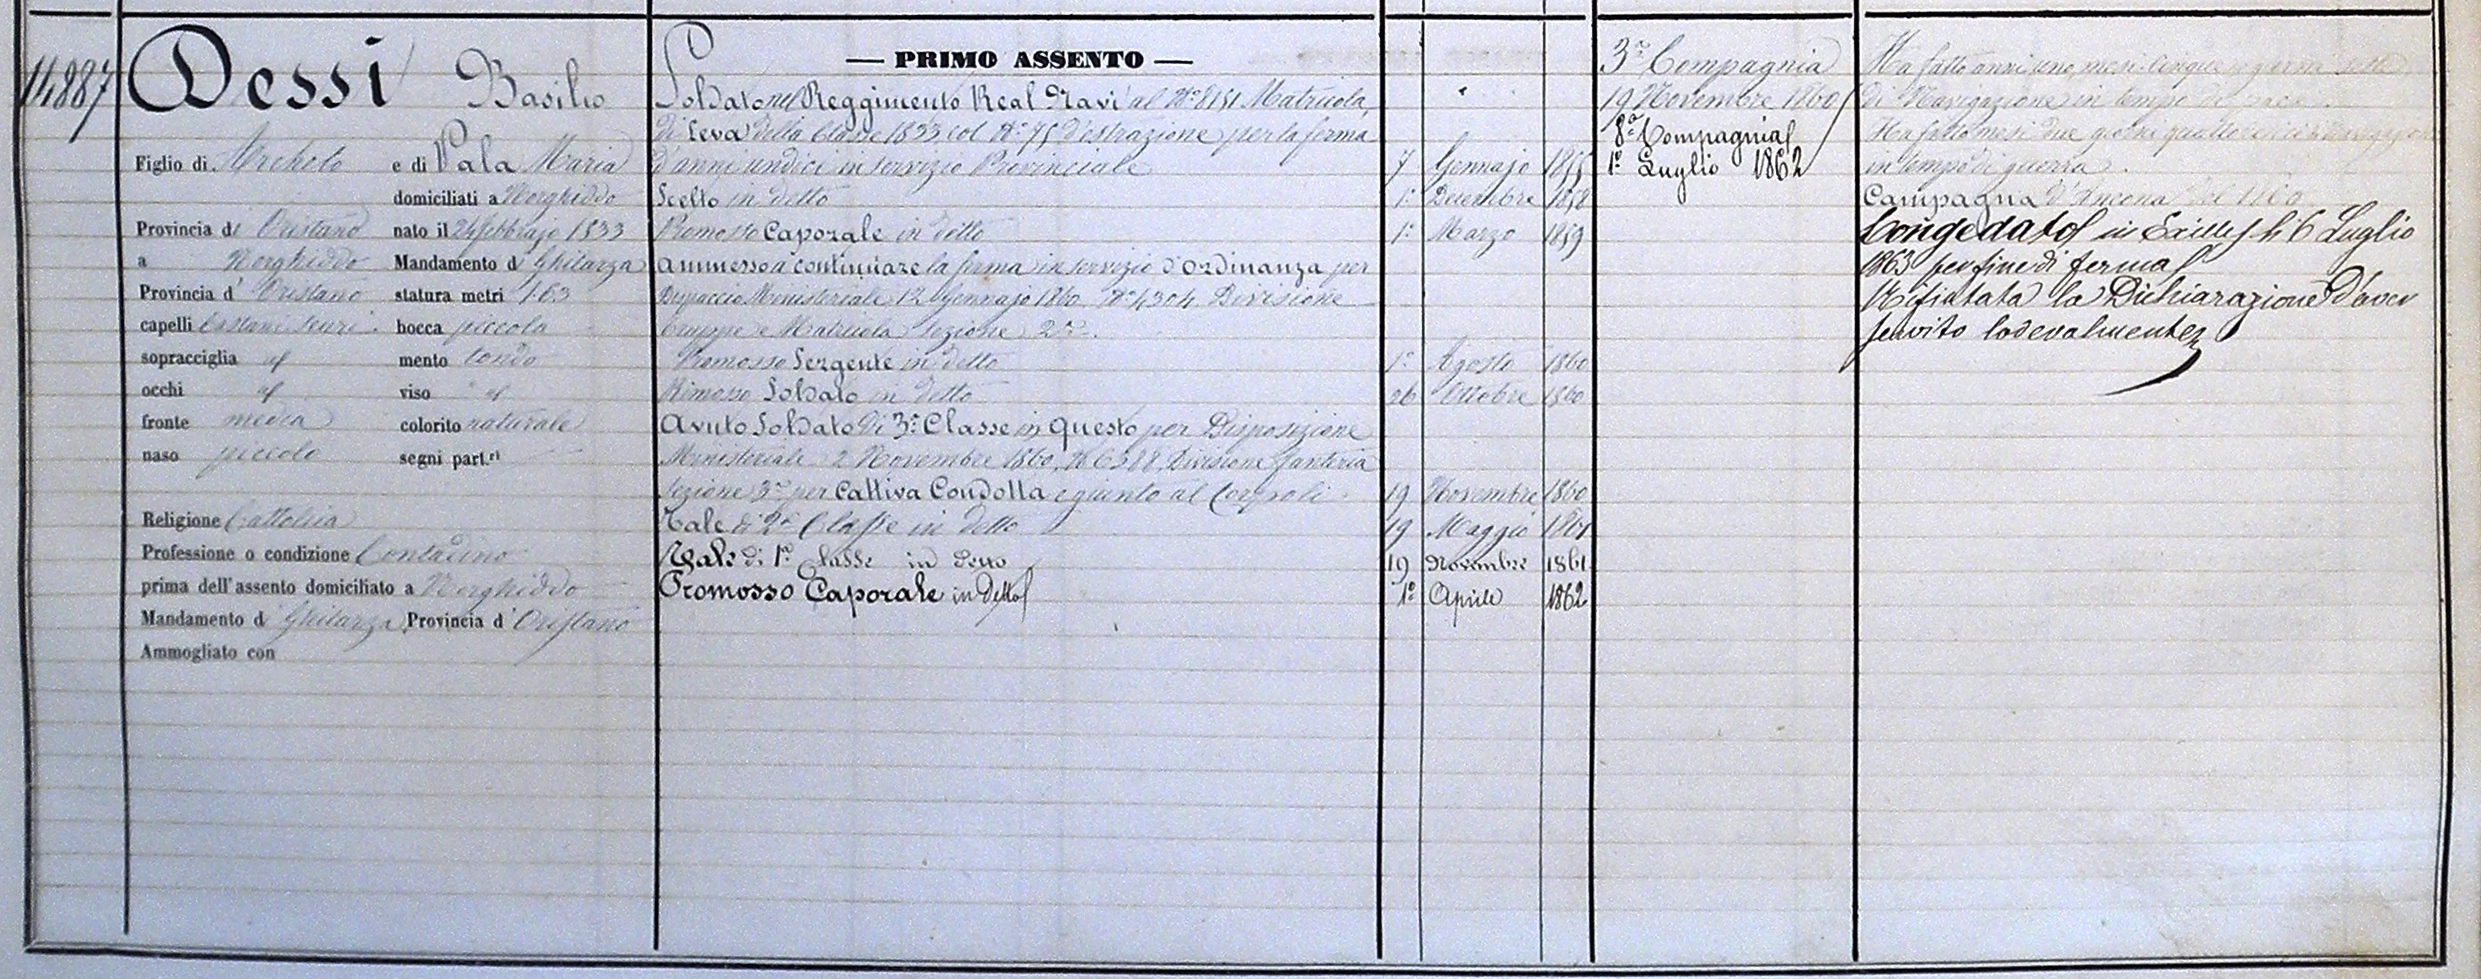 14887
Dessi Basilio
Figlio di Archelo e di Pala Maria
domiciliati a Norghiddo
Provincia di Oristano nato il 24 febbrajo 1833
a Norghiddo Mandamento di Ghilarza
Provincia d' Oristano statura metri 1.63
capelli Castani scuri bocca piccola
sopracciglia id mento tondo
occhi id viso id
fronte media colorito naturale
naso piccolo segni part.ri
Religione Cattolica
Professione o condizione Contadino
prima dell'assento domiciliato a Norghiddo
Mandamento di Ghilarza Provincia d' Oristano
Ammogliato con
— PRIMO ASSENTO —
Soldato nel Reggimento Real Navi al N.º 8151 Matricola
di Leva della Classe 1833 col N.º 75 d'estrazione per la ferma
d'anni undici in servizio Provinciale 7 Gennajo 1855
Scelto in detto 1.º Decembre 1858
Promosso Caporale in detto 1.º Marzo 1859
Ammesso a continuare la ferma in servizio d'Ordinanza per
Dispaccio Ministeriale 12 Gennajo 1860 N.º 4304 Divisione
Truppe e Matricola Sezione 2.a
Promosso Sergente in detto 1.º Agosto 1860
Rimosso Soldato in detto 26 Ottobre 1860
Avuto Soldato di 3.a Classe in questo per Disposizione
Ministeriale 2 Novembre 1860 N. 6388 Divisione fanteria
Sezione 3.a per Cattiva Condotta e giunto al Corpo li 19 Novembre 1860
Tale di 2.a Classe in detto 19 Maggio 1861
Tale di 1.a Classe in detto 19 Novembre 1861
Promosso Caporale in detto 1.º Aprile 1862
3.a Compagnia
19 Novembre 1860
8.a Compagnia
1.º Luglio 1862
Ha fatto anni uno, mesi cinque e giorni
di Navigazione in tempo di pace.
Ha fatto mesi due giorni quattordici di navigazione
in tempo di guerra.
Campagna d'Ancona del 1860
Congedato in Exilles li 6 Luglio
1863 per fine di ferma
Rifiutata la Dichiarazione d'aver
servito lodevolmente